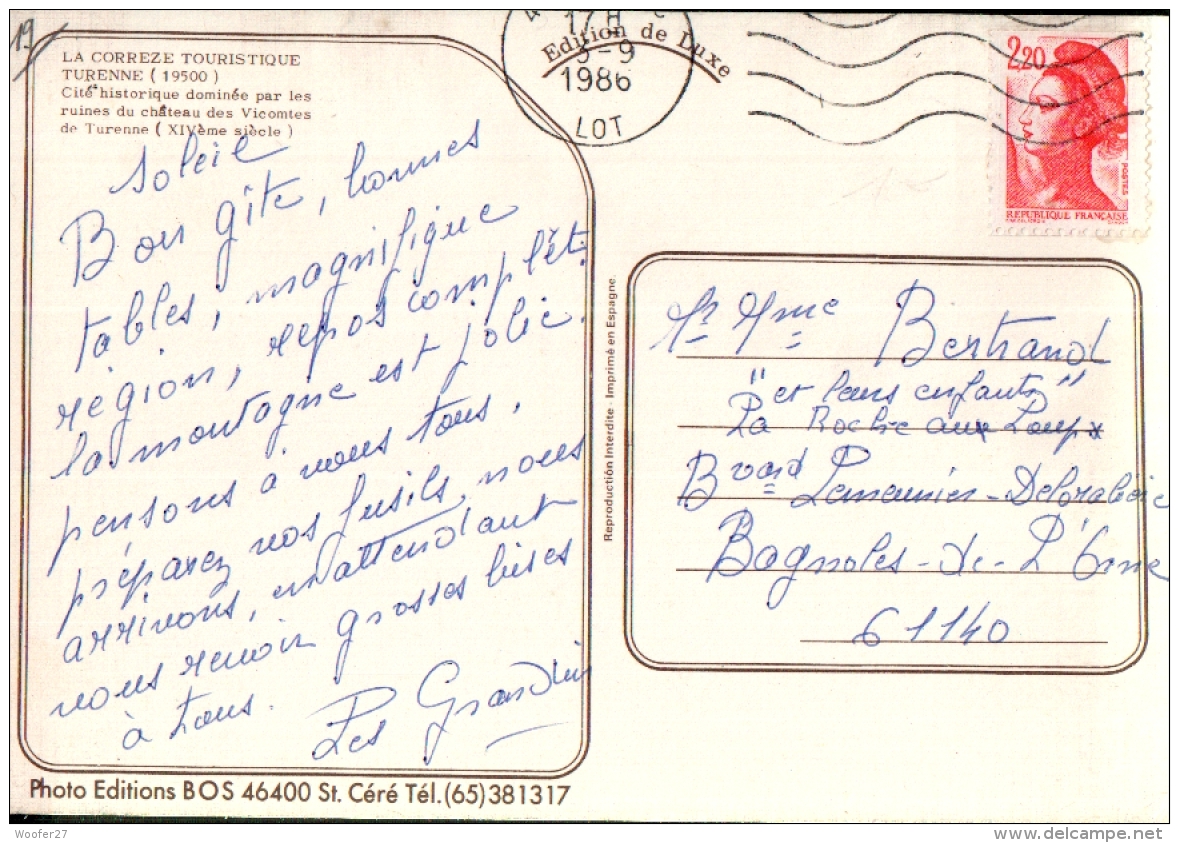 19
LA CORREZE TOURISTIQUE
TURENNE ( 19500 )
Cité historique dominée par les
ruines du château des Vicomtes
de Turenne ( XIVème siècle )
Soleil
Bon gîte, bonnes
tables, magnifique
région, repos complèt.
la montagne est jolie.
pensons à vous tous,
préparez vos fusils, nous
arrivons, en attendant
vous revoir grosses bises
à tous.
Les Grandin
Photo Editions BOS 46400 St. Céré Tél.(65)381317
Edition de Luxe
17 H
5-9
1986
LOT
2,20
POSTES
REPUBLIQUE FRANÇAISE
Reproduction Interdite - Imprimé en Espagne
Mr Mme Bertrand
"et leurs enfants"
La Roche aux Loups
Bvard Lemeunier-Delarabière
Bagnoles-de-L'Orne
61140
Woofer27
http://www.delcampe.net